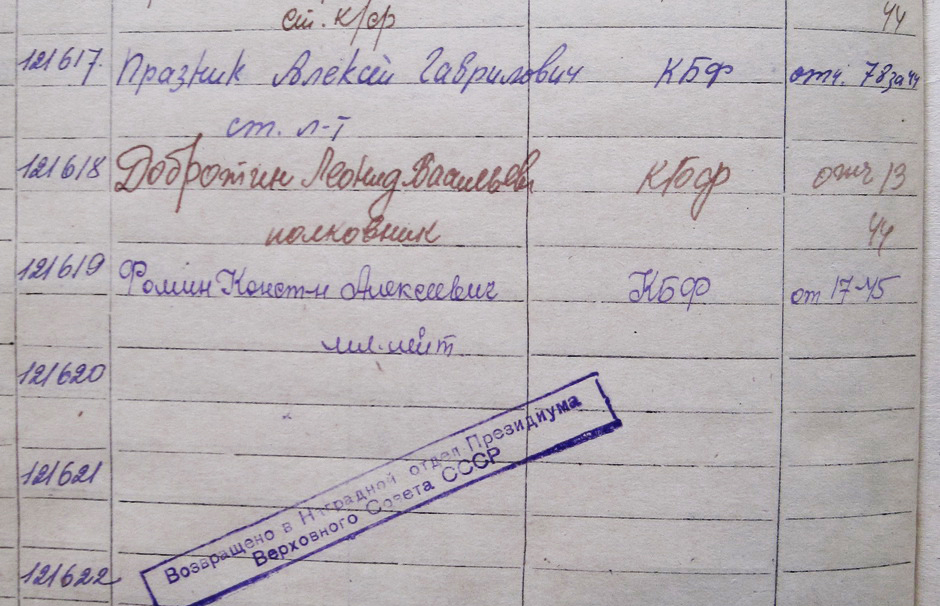 ст. к/ф 44
121617. Празник Алексей Гаврилович КБФ отч. 78 за 44
ст. л-т
121618 Добротин Леонид Васильеви КБФ отч 13
полковник 44
121619 Фомин Конст-н Алексеевич КБФ от 17-45
мл. лейт
121620
121621
121622
Возвращено в Наградной отдел Президиума
Верховного Совета СССР